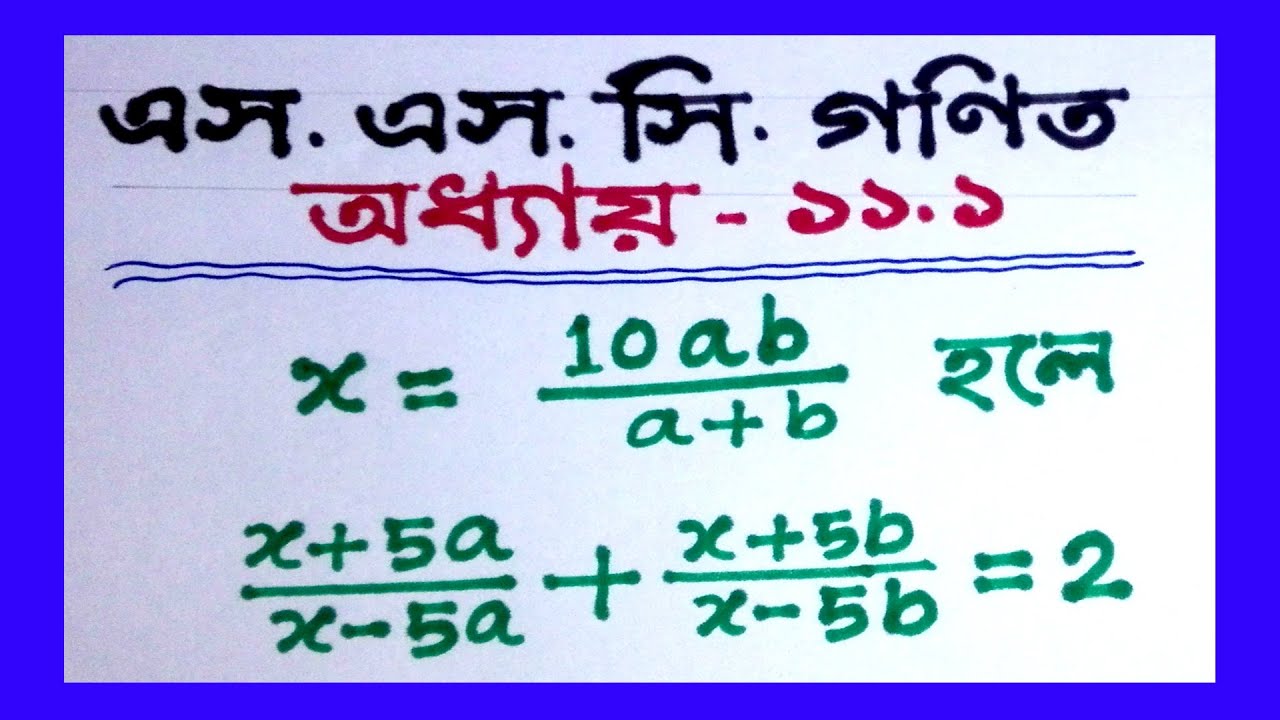 এস. এস. সি. গণিত
অধ্যায় - ১১.১
x = 10ab/a+b হলে
x+5a/x-5a + x+5b/x-5b = 2